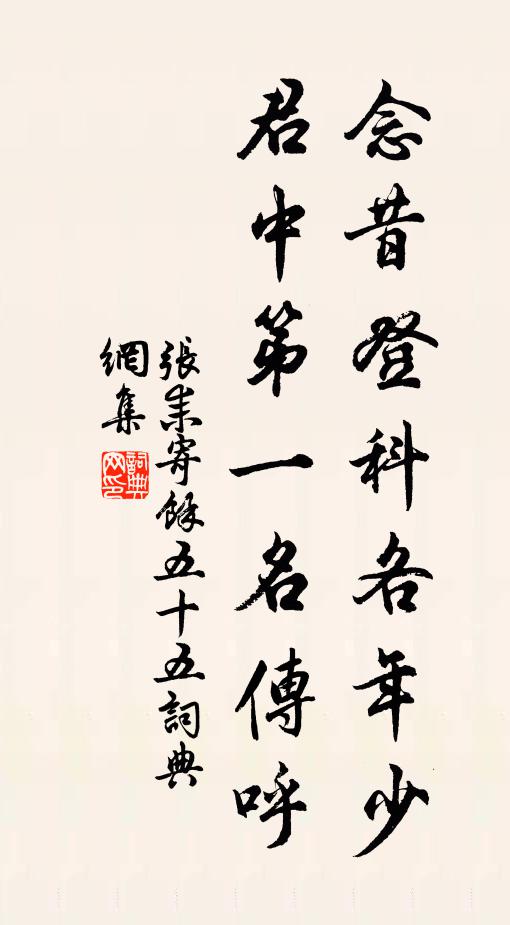 念昔登科各年少
君中第一名傳呼
張耒寄餘五十五詞典
網集
詞典網印